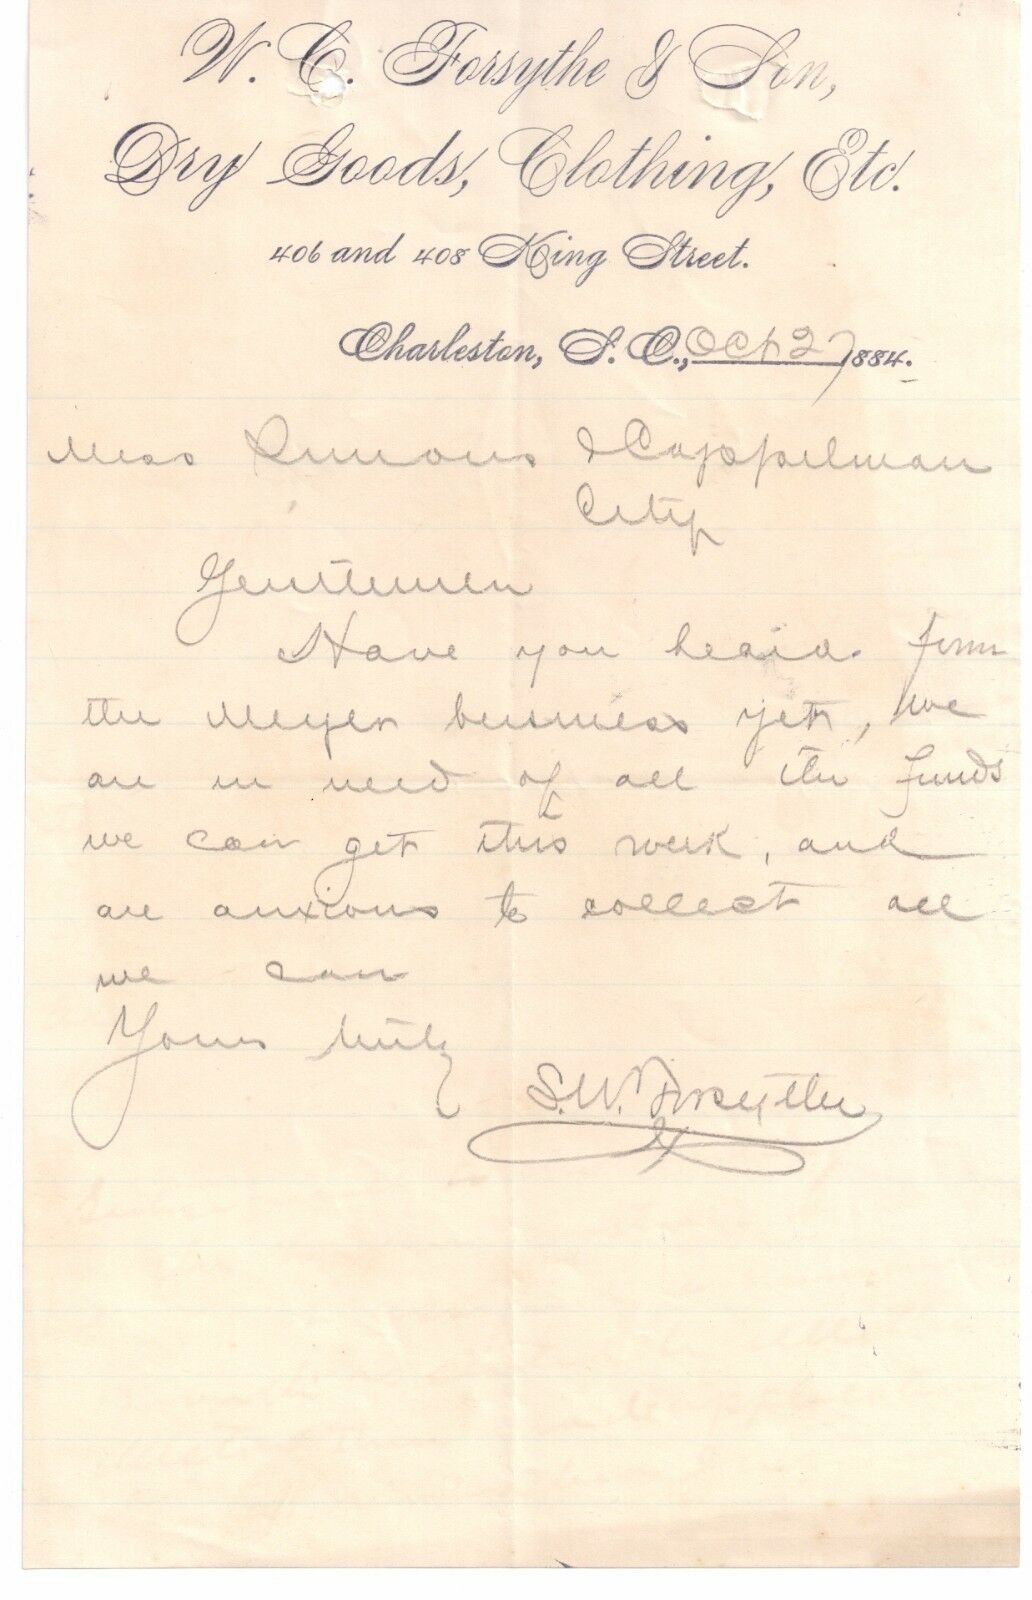 W. C. Forsythe & Son,
Dry Goods, Clothing, Etc.
406 and 408 King Street.
Charleston, S. C., Oct 27 1884.
Mess Simons & Cappelman
City
Gentlemen
Have you heard from
the Meyer business yet, we
are in need of all the funds
we can get this week, and
are anxious to collect all
we can
Yours truly
S. W. Forsythe